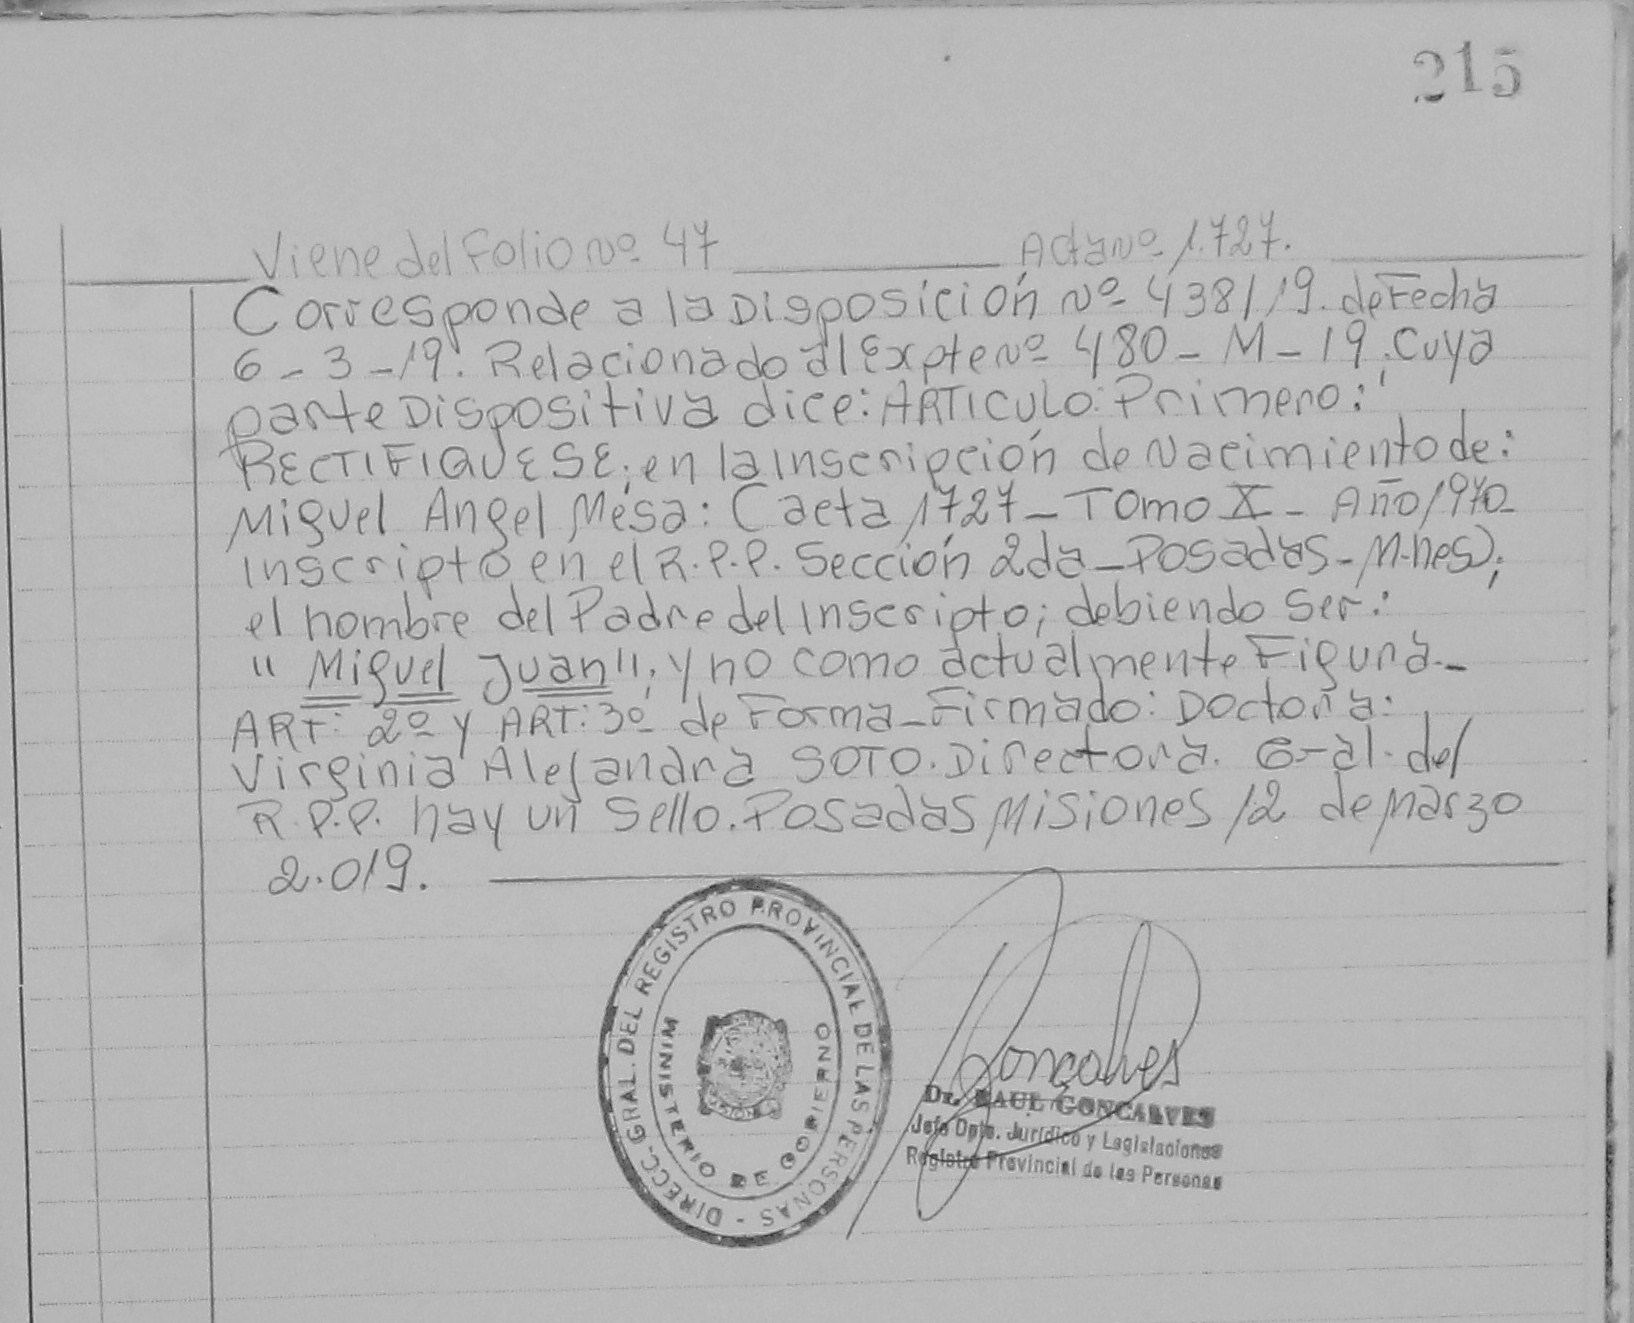 215
Viene del Folio Nº 47 Acta Nº 1.727.
Corresponde a la Disposición Nº 438/19. de Fecha
6-3-19. Relacionado al Expte Nº 480-M-19. Cuya
parte Dispositiva dice: ARTICULO: Primero:
RECTIFIQUESE; en la Inscripción de Nacimiento de:
Miguel Angel Mesa: (acta 1727-Tomo X- Año 1970-
Inscripto en el R.P.P. Sección 2da-Posadas-M-nes);
el nombre del Padre del Inscripto; debiendo Ser:
"Miguel Juan"; y no como actualmente Figura.-
ART: 2º y ART: 3º de Forma-Firmado: Doctora:
Virginia Alejandra SOTO. Directora. G-al. del
R.P.P. hay un Sello. Posadas Misiones 12 de Marzo
2.019.
DIRECC. GRAL. DEL REGISTRO PROVINCIAL DE LAS PERSONAS -
MINISTERIO DE GOBIERNO
Goncalves
Dr. RAUL GONCALVES
Jefe Dpto. Jurídico y Legislaciones
Registro Provincial de las Personas